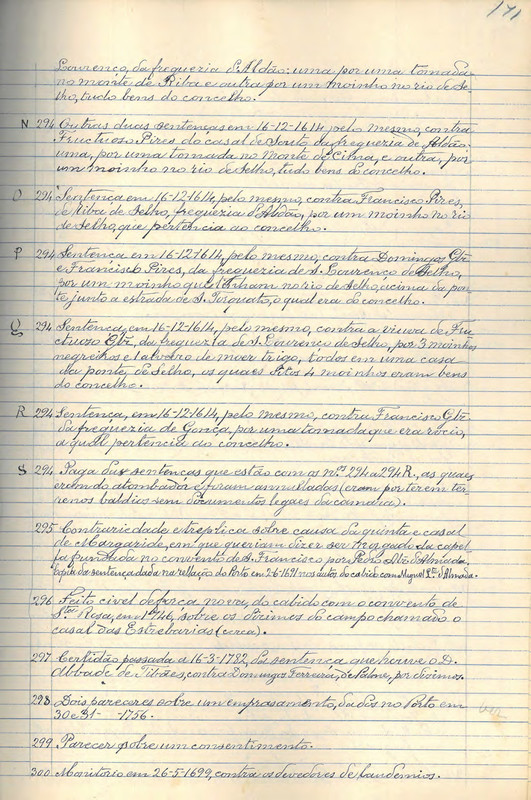 171
Lourenço, da freguezia d'Aldão: uma por uma tomada
no monte de Riba e outra por um moinho no rio de Se-
lho, tudo bens do concelho.
N 294 Outras duas sentenças em 16-12-1614, pelo mesmo, contra
Fructuoso Pires do casal de Souto, da freguezia de Aldão
uma, por uma tomada no monte de Cima, e outra, por
um moinho no rio de Selho, tudo bens do concelho.
O 294 Sentença em 16-12-1614, pelo mesmo, contra Francisco Pires,
de Riba de Selho, freguezia d'Aldão, por um moinho no rio
de Selho, que pertencia ao concelho.
P 294 Sentença em 16-12-1614, pelo mesmo, contra Domingos Glz
e Francisco Pires, da freguezia de S. Lourenço de Selho,
por um moinho que tinham no rio de Selho, acima da pon-
te junto a estrada de S. Torquato, o qual era do concelho.
Q 294 Sentença, em 16-12-1614, pelo mesmo, contra a viuva de Fru-
ctuoso Glz, da freguezia de S. Lourenço de Selho, por 3 moinhos
negreiros e 1 alveiro de moer trigo, todos em uma casa
da ponte, de Selho, os quaes ditos 4 moinhos eram bens
do concelho.
R 294 Sentença, em 16-12-1614, pelo mesmo, contra Francisco Glz
da freguezia de Gonça, por uma tomada que era rocio,
a qual pertencia ao concelho.
S 294 Paga das sentenças que estão com os nos 294 a 294 R, as quaes
eram do atombador e foram annulladas (eram por terem ter-
renos baldios sem documentos legaes da camara).
295 Contrariedade e treplica sobre causa da quinta e casal
de Margaride, em que queriam dizer ser Morgado da capel-
la fundada no convento de S. Francisco por Pedro Alz d'Almada.
Copia da sentença dada na relação do Porto em 2-6-1691 nos autos do cabido com Miguel d'Almada.
296 Feito civel de força nova, do cabido com o convento de
Sta Rosa, em 1746, sobre os dizimos do campo chamado o
casal das Estrebarias (cerca).
297 Certidão passada a 16-3-1782, da sentença que houve o D.
Abbade de Tibães, contra Domingos Ferreira, de Palme, por dizimos.
298 Dois pareceres sobre um emprasamento, dados no Porto em
30 e 31- -1756.
ver
299 Parecer sobre um consentimento.
300 Monitorio em 26-5-1699, contra os devedores de laudemios.